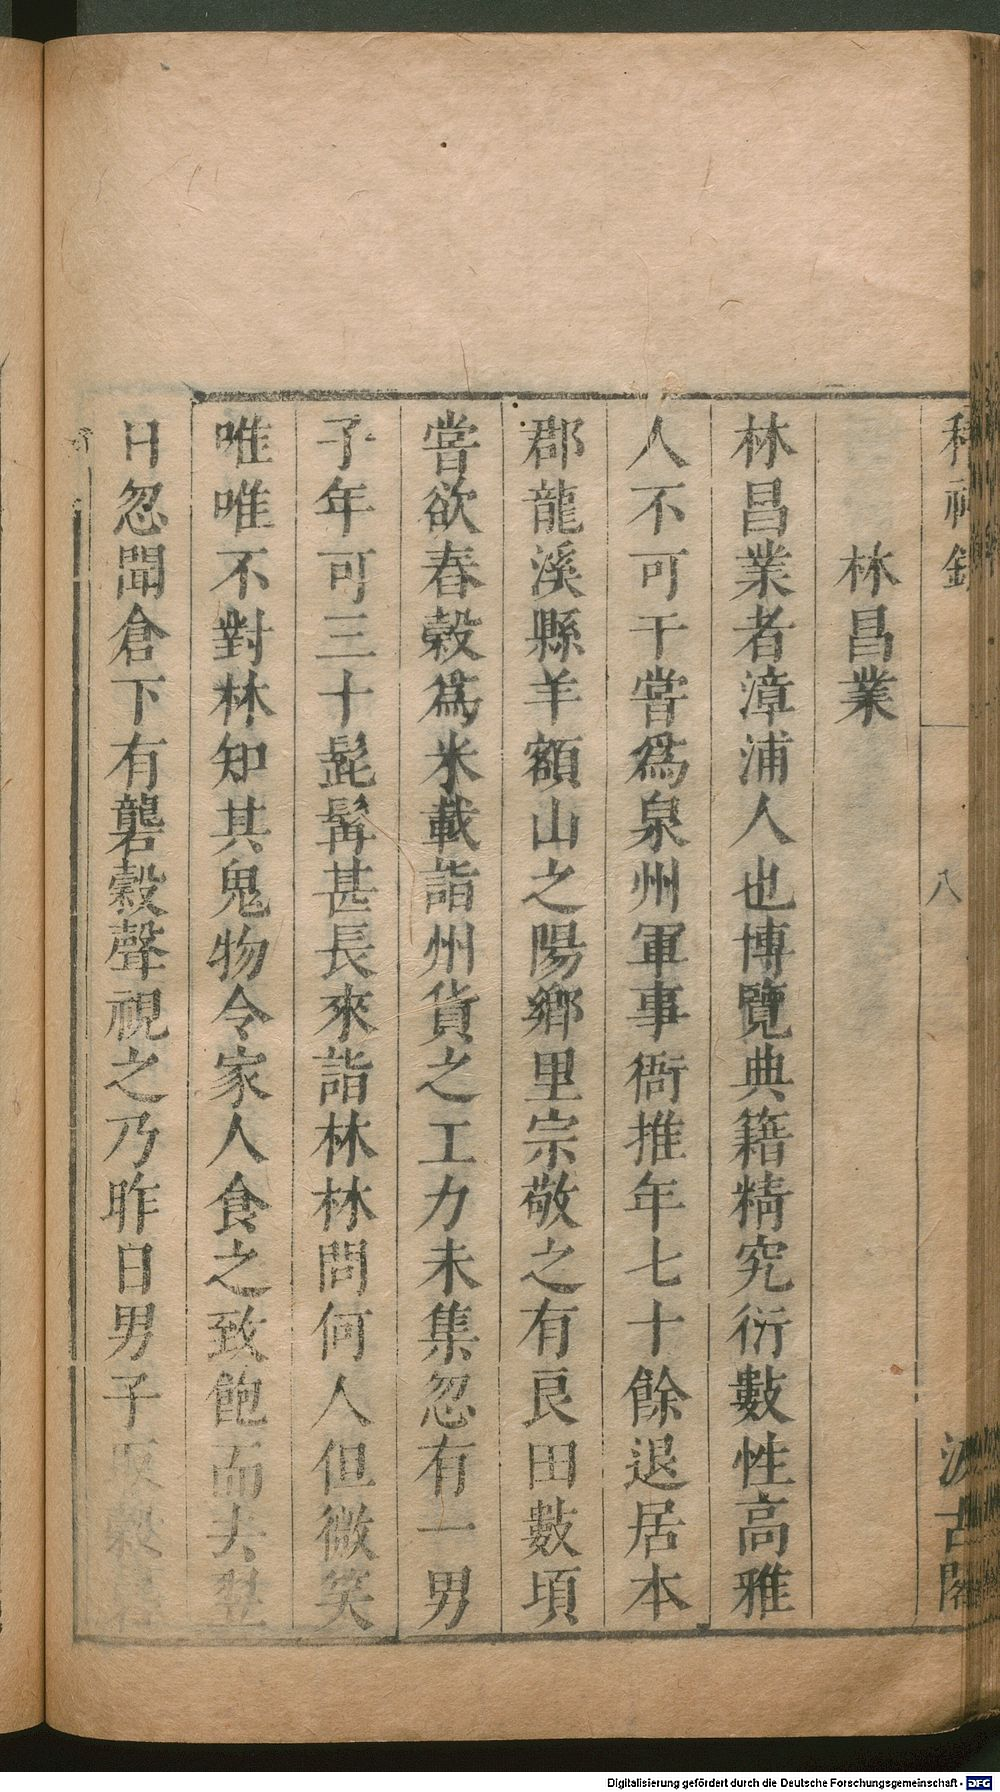 稽神録 八 汲古閣
林昌業
林昌業者漳浦人也博覽典籍精究衍數性高雅
人不可干嘗爲泉州軍事衙推年七十餘退居本
郡龍溪縣羊額山之陽鄉里宗敬之有良田數頃
嘗欲舂榖爲米載詣州貨之工力未集忽有一男
子年可三十髭髯甚長來詣林林問何人但微笑
唯唯不對林知其鬼物令家人食之致飽而去翌
日忽聞倉下有礱榖聲視之乃昨日男子取榖
Digitalisierung gefördert durch die Deutsche Forschungsgemeinschaft - DFG